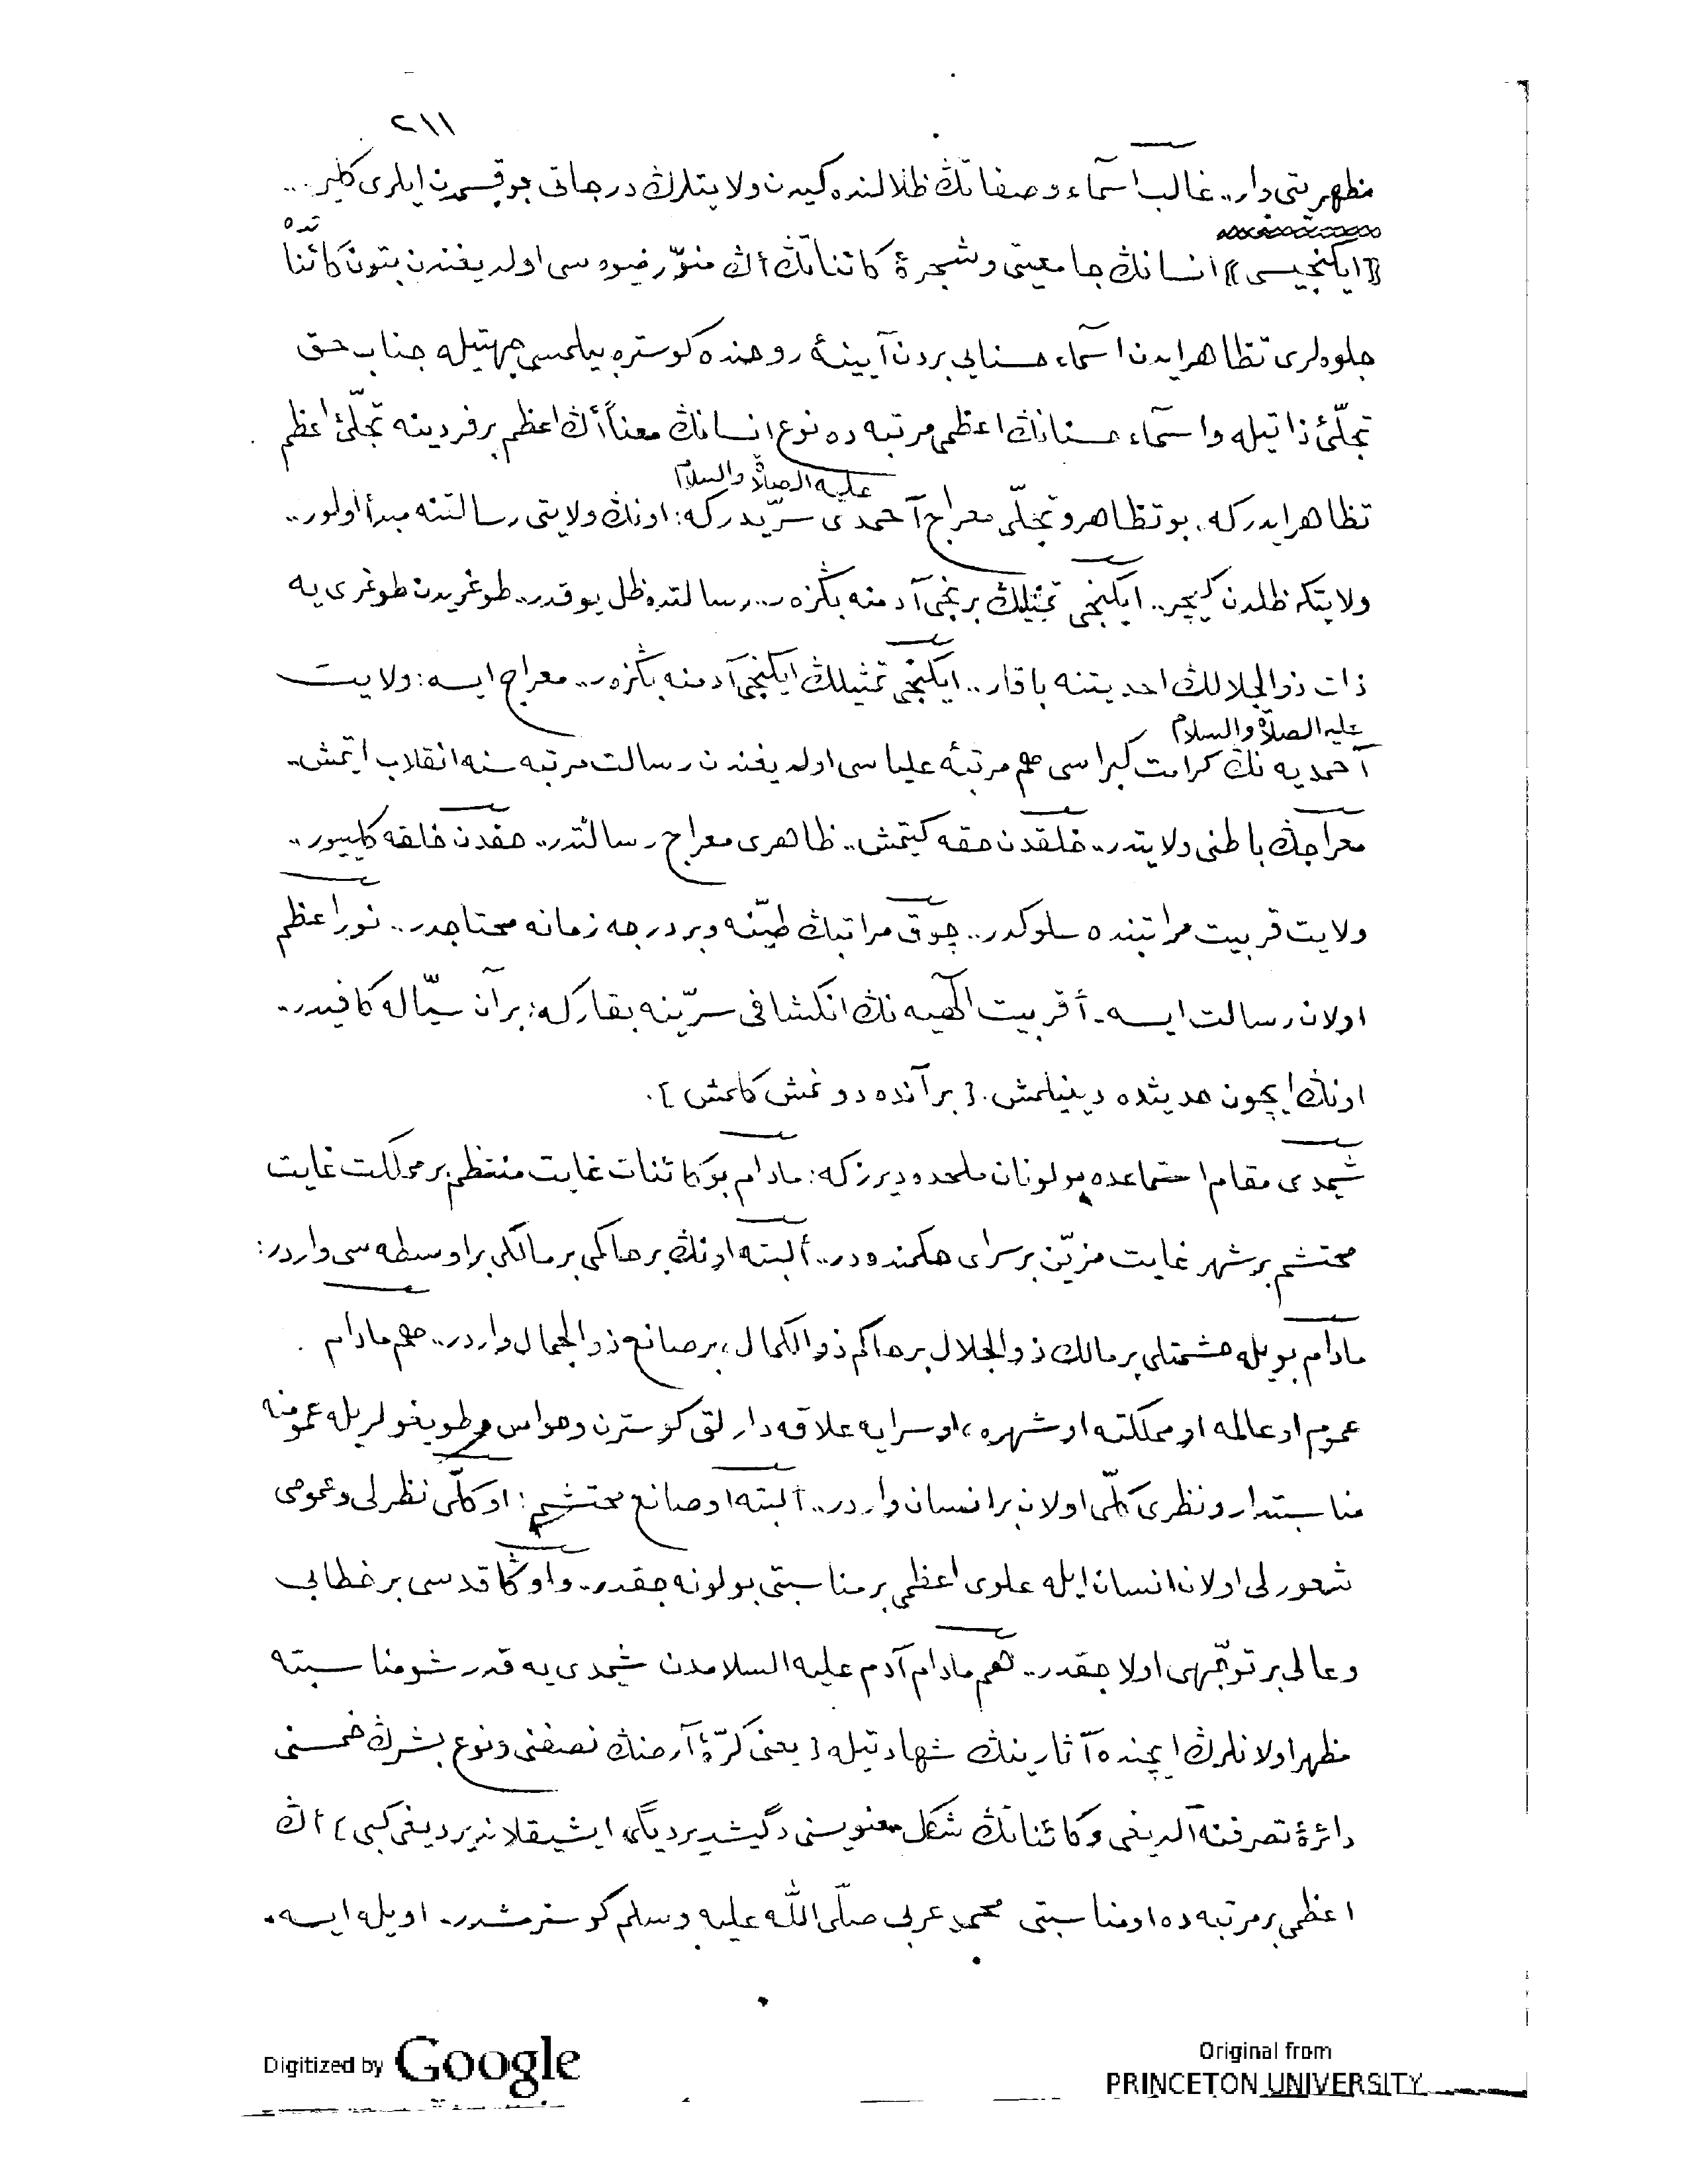 ٢١١
مظهریتی وار.. غالب اسمآء و صفاتڭ ظلالنده کیدن ولایتلرڭ درجاتی بو قسمدن ایلری کلیر...
((ایکنجیسی)) انسانڭ جامعیتی و شجرهٔ کائناتڭ أڭ منوّر میوه سی اولدیغندن بتون کائناتده
جلوه لری تظاهر ایدن اسمآء حسنایی بردن آیینهٔ روحنده کوستره بیلمسی جهتیله جناب حق
تجلّئ ذاتیله و اسمآء حسنانڭ اعظمی مرتبه ده نوع انسانڭ معناً أڭ اعظم بر فردینه تجلّئ اعظم
علیه الصلاة والسلام
تظاهر ایدرکه، بو تظاهر و تجلّی معراج آحمدی سرّیدرکه: اونڭ ولایتی رسالتنه مبدأ اولور..
ولایتکه ظلدن کیچر.. ایکنجی تمثیلڭ برنجی آدمنه بڭزه ر.. رسالتده ظل یوقدر.. طوغریدن طوغری یه
ذات ذوالجلالڭ احدیتنه باقار.. ایکنجی تمثیلڭ ایکنجی آدمنه بڭزه ر.. معراج ایسه: ولایت
علیه الصلاة والسلام
آحمدیه نڭ کرامت کبراسی هم مرتبهٔ علیاسی اولدیغندن رسالت مرتبه سنه انقلاب ایتمش..
معراجڭ باطنی ولایتدر.. خلقدن حقه کیتمش.. ظاهری معراج رسالتدر.. حقدن خلقه کلییور..
ولایت قربیت مراتبنده سلوکدر.. چوق مراتبڭ طیّنه و بر درجه زمانه محتاجدر.. نور اعظم
اولان رسالت ایسه. أقربیت الٓهیه نڭ انکشافی سرّینه بقارکه: بر آن سیّاله کافیدر..
اونڭ ایچون حدیثده دینیلمش. [بر آنده دونمش کلمش].
شیمدی مقام استماعده بولونان ملحده دیرزکه: مادام بو کائنات غایت منتظم بر مملکت غایت
محتشم بر شهر غایت مزیّن بر سرای حکمنده در.. ألبته اونڭ بر حاکمی بر مالکی بر اوسطه سی واردر:
مادام بویله حشمتلی بر مالك ذوالجلال بر حاکم ذوالکمال، بر صانع ذوالجمال واردر.. هم مادام
عموم او عالمه او مملکته او شهره، او سرایه علاقه دارلق کوسترن و حواس و طویغولریله عمومنه
مناسبتدار و نظری کلّی اولان بر انسان واردر.. ألبته او صانع محتشم: او کلّی نظرلی و عمومی
شعورلی اولان انسان ایله علوی اعظمی بر مناسبتی بولونه جقدر.. و اوڭا قدسی بر خطابی
و عالی بر توجّهی اولاجقدر.. هم مادام آدم علیه السلامدن شیمدی یه قدر شو مناسبته
مظهر اولانلرڭ ایچنده آثارینڭ شهادتیله [یعنی کرّهٔ آرضڭ نصفنی و نوع بشرڭ خمسنی
دائرهٔ تصرفنه آلدیغی و کائناتڭ شکل معنویسنی دگیشدیردیگی ایشیقلاندیردیغی کبی] أڭ
اعظمی بر مرتبه ده او مناسبتی محمد عربی صلّی اللّه علیه وسلم کوسترمشدر.. اویله ایسه.
Digitized by Google
Original from
PRINCETON UNIVERSITY